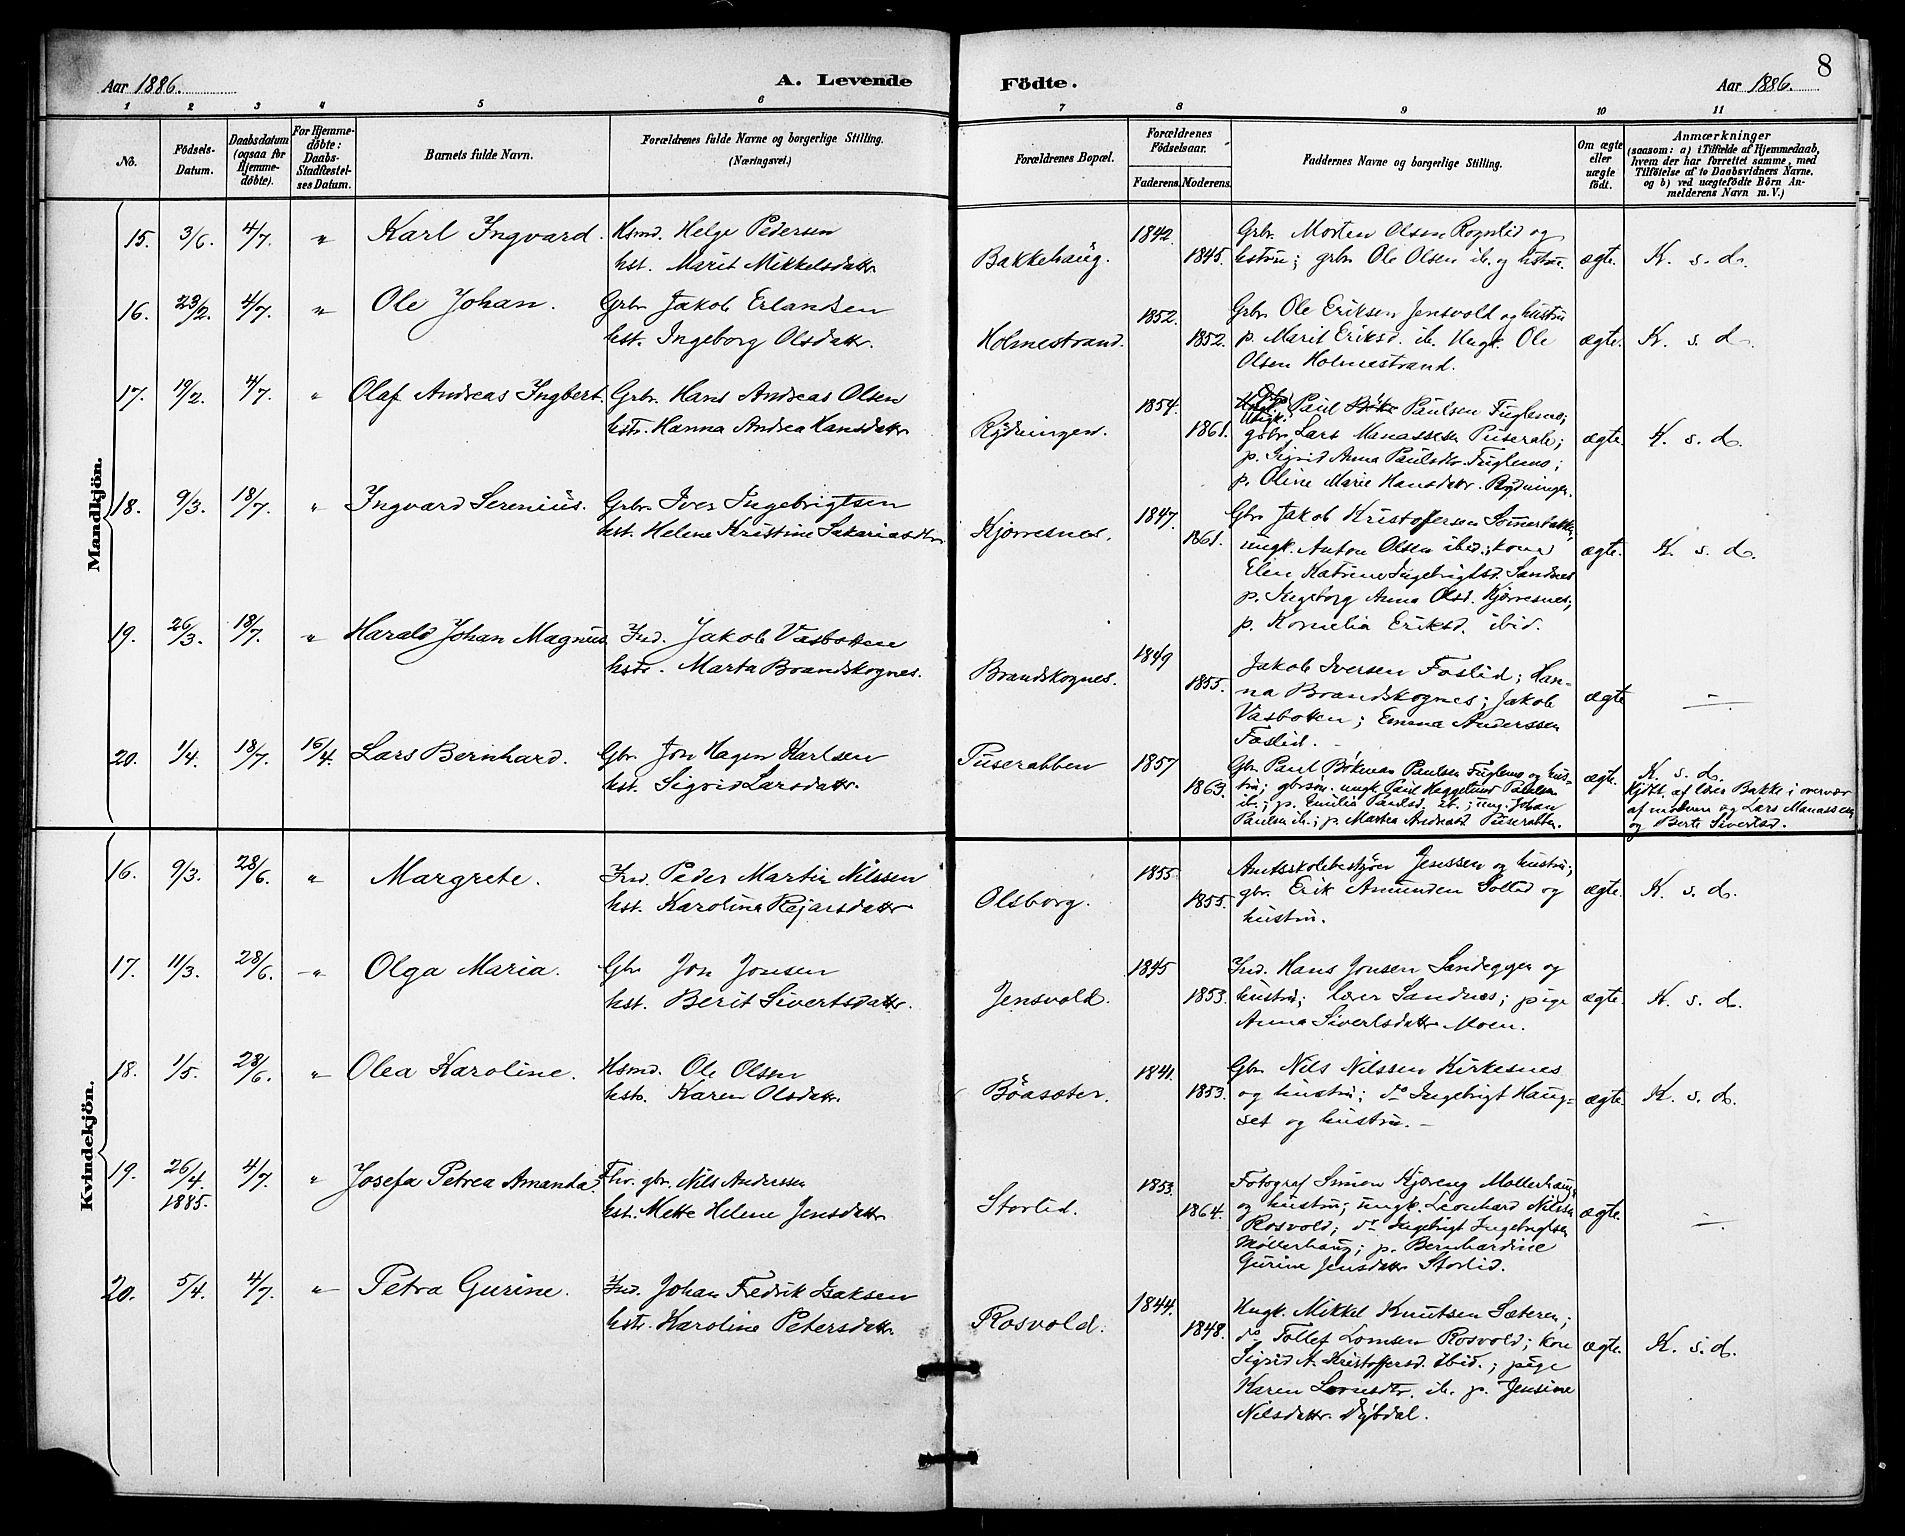 8
Aar 1886.
A. Levende
Födte.
Aar 1886.
1 2 3 4 5 6 7 8 9 10 11
No.
Födsels-Datum.
Daabsdatum (ogsaa for Hjemme-döbte).
For Hjemme-döbte: Daabs-Stadfæstel-ses Datum.
Barnets fulde Navn.
Forældrenes fulde Navne og borgerlige Stilling.
(Næringsvei.)
Forældrenes Bopæl.
Forældrenes Födselsaar.
Faderens. Moderens.
Faddernes Navne og borgerlige Stilling.
Om ægte eller uægte födt.
Anmærkninger
(saasom: a) i Tilfælde af Hjemmedaab, hvem der har forrettet samme, med Tilföielse af to Daabsvidners Navne, og b) ved uægtefödte Börn An-melderens Navn m. V.)
Mandkjön.
15. 3/6. 4/7. " Karl Ingvard. Hsmd. Helge Pedersen
hst. Marit Mikkelsdatter
Bakkehaug. 1842. 1845.
Grbr. Morten Olsen Rognlid og
hustru; grbr. Ole Olsen ib. og hustru.
ægte. K. s. d.
16. 23/2. 4/7. " Ole Johan. Grbr. Jakob Erlandsen
hst. Ingeborg Olsdatter.
Holmestrand. 1852. 1852.
Grbr. Ole Eriksen Jensvold og hustru
p. Marit Eriksd. ib. Ungk. Ole
Olsen Holmestrand.
ægte. K. s. d.
17. 19/2. 4/7. " Olaf Andreas Ingbert. Grbr. Hans Andreas Olsen
hstr. Hanna Andrea Hansdatter
Rydningen. 1854. 1861.
Ungk. Paul Paulsen Fuglemo;
gbr. Lars Manassesen Puserab;
p. Sigrid Anna Paulsdtr. Fuglemo;
p. Oline Marie Hansdatter. Rydningen.
ægte. K. s. d.
18. 9/3. 18/7. " Ingvard Serenius. Grbr. Iver Ingebrigtsen
hst. Helene Kristine Sakariasdtr.
Kjørresnes. 1847. 1861.
Gbr. Jakob Kristoffersen
ungk. Anton Olsen ibid.; kone
Elen Katrine Ingebrigtsd. Sandnes
p. Ingeborg Anna Olsd. Kjørresnes;
p. Kornelia Eriksd. ibid.
ægte. K. s. d.
19. 26/3. 18/7. " Harald Johan Magnus. Ind. Jakob Vasbotten
hstr. Marta Brandskognes.
Brandskognes. 1849 1855.
Jakob Iversen Foslid; Han-
na Brandskognes; Jakob
Vasbotten; Emma Anderssen
Foslid. –
ægte –
20. 1/4. 18/7. 16/4. Lars Bernhard. Gbr. Jon Hagen Karlsen
hst. Sigrid Larsdatter.
Puserabben 1857 1863.
Gbr. Paul Bøkmas Paulsen Fuglemo og hus-
tru; gbrsøn. ungk. Paul Heggelund Paulsen
ib.; p. Emilia Paulsd. ib.; ung. Johan
Paulsen ib.; p. Martea Andreasd Puserabben.
ægte. K. s. d.
Hjdbt. af lærer Bakke i overvær
af moderen og Lars Manassesen
og Berte Sivertsd.
Kvindekjön.
16. 9/3. 28/6. " Margrete. Ind. Peder Martin Nilssen
hst. Karoline Rejarsdatter
Olsborg. 1855. 1855.
Amtsskolebestyrer Jenssen og hustru;
gbr. Erik Amunden Solled og
hustru.
ægte. K. s. d.
17. 11/3. 28/6. " Olga Maria. Gbr. Jon Jonsen
hst. Berit Sivertsdatter.
Jensvold. 1845 1853.
Ind. Hans Jonsen Sandeggen og
hustru; lærer Sandnes; pige
Anna Sivertsdatter Moen.
ægte. K. s. d.
18. 1/5. 28/6. " Olea Karoline. Hsmd. Ole Olsen
hstr. Karen Olsdatter.
Bøasæter. 1841. 1853.
Gbr. Nils Nilssen Kirkesnes
og hustru; do Ingebrigt Haug-
set og hustru. –
ægte. K. s. d.
19. 26/4 1885. 4/7. " Josefa Petrea Amanda. Fhv. gbr. Nils Anderssen
hst. Mette Helene Jensdatter
Storlid. 1853. 1864.
Fotograf Simon Kjøreng Møllerhaug
og hustru; ungk. Leonhard Nilsen
Rosvold; do Ingebrigt Ingebrigtsen
Møllerhaug; p. Bernhardine
Gurine Jensdatter Storlid.
ægte. –
20. 5/4. 4/7. " Petra Gurine. Ind. Johan Fredrik Isaksen
hstr. Karoline Petersdatter
Rosvold. 1844. 1848.
Ungk. Mikkel Knutsen Sæteren;
do Tollef Lomsen Rosvold; kone
Sigrid A. Kristoffersd. Ibid.; pige
Karen Lornsdtr. ib. p. Jensine
Nilsdatter. Dybdal.
ægte. K. s. d.